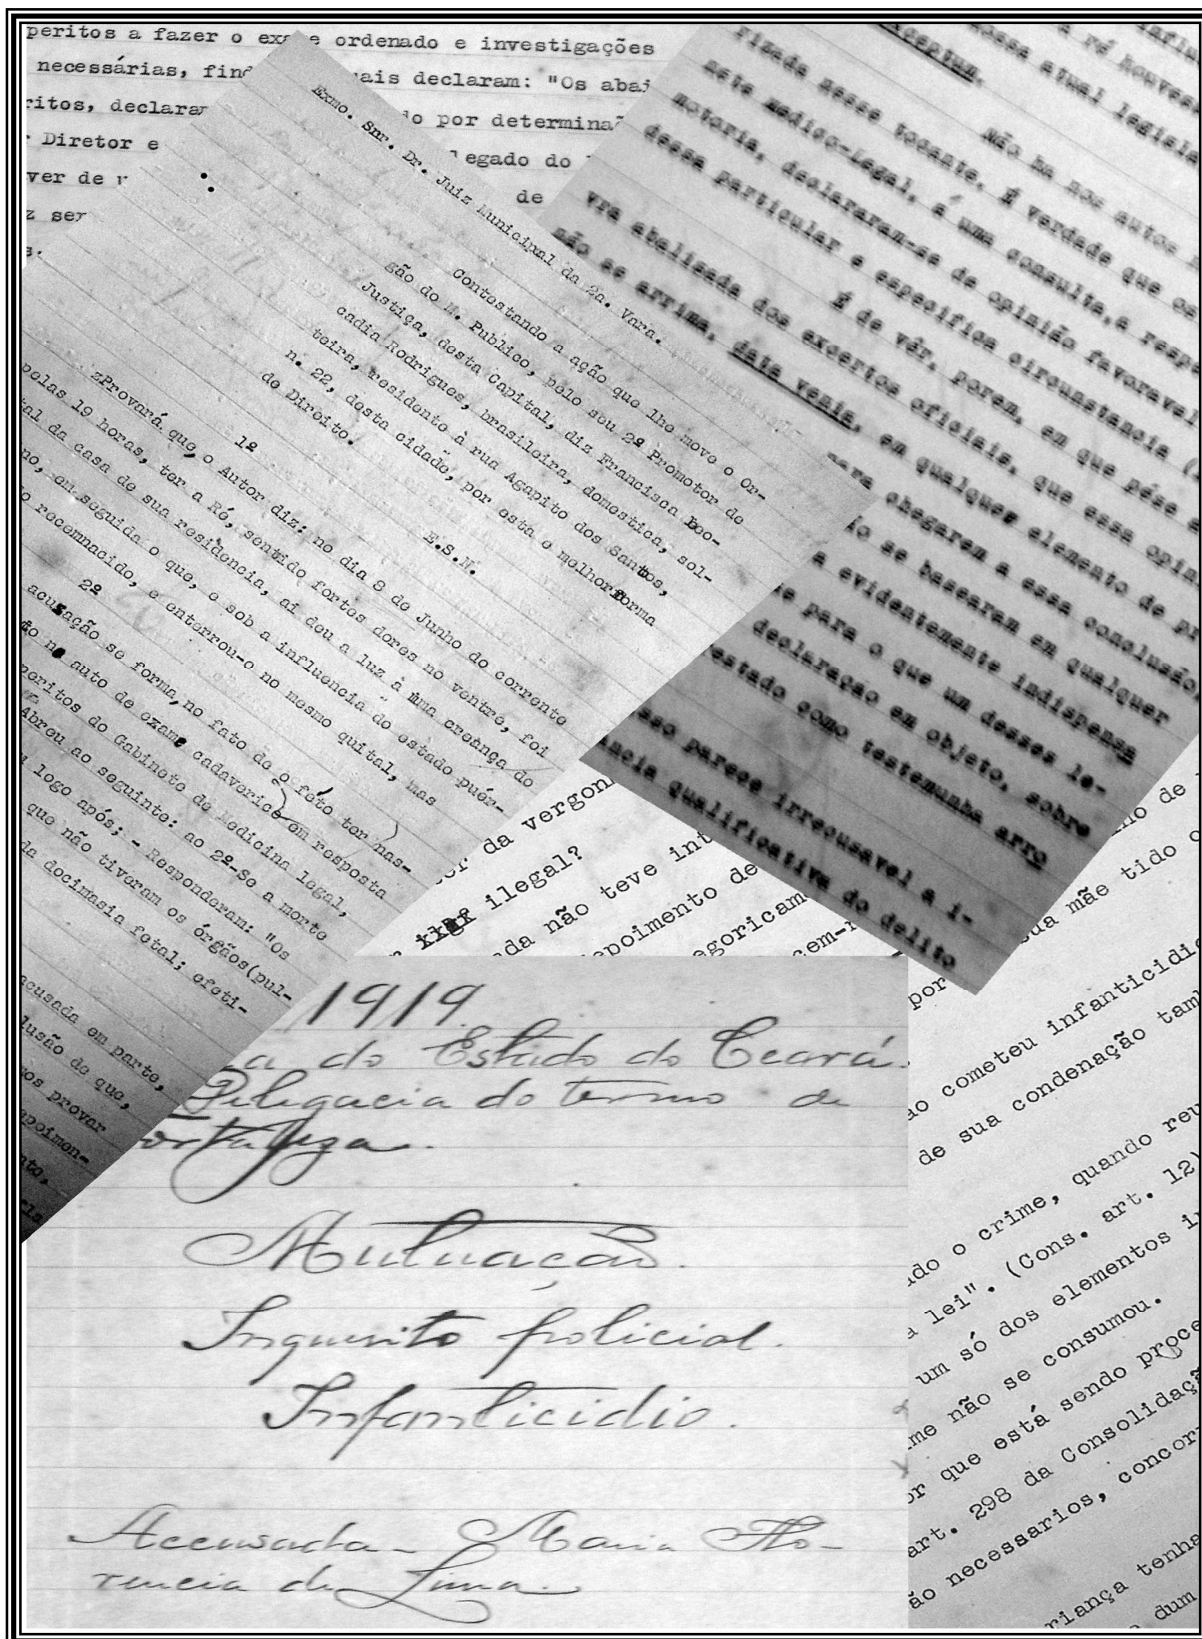 peritos a fazer o exa e ordenado e investigações
necessárias, find uais declaram: "Os abai
ritos, declaram do por determinaç
r Diretor e legado do
ver de v de
z ser
s.
Exmo. snr. Dr. Juiz Municipal da 2a. Vara.
Contestando a ação que lhe move o Or-
gão do M. Publico, pelo seu 2º Promotor de
Justiça, desta Capital, diz Francisca Leo-
cadia Rodrigues, brasileira, domestica, sol-
teira, residente à rua Agapito dos Santos,
n. 22, desta cidade, por esta e melhor forma
de Direito.
E.S.N.
1º
Provará que, o Autor diz: no dia 8 de Junho do corrente
pelas 19 horas, ter a Ré, sentido fortes dores no ventre, foi
tal da casa de sua residencia, aí deu a luz à uma creança do
no, em seguida o que, e sob a influencia do estado puér-
o recemnacido, e enterrou-o no mesmo quital, mas
2º
acusação se forma, no fato de o féto ter nas-
to no auto de exame cadaverico em resposta
peritos do Gabinete de Medicina legal,
Abreu ao seguinte: ao 2º-Se a morte
u logo após; - Responderam: "Os
que não tiveram os órgãos(pul-
da docimasia fetal; efeti-
acusada em parte,
lusão de que,
os provar
epoimen-
nto,
influ
a ré houvesse
nossa atual legisla
Não ha nos autos
rizada nesse tocante. É verdade que os
nete medico-legal, a uma consulta, a resp
motoria, declararam-se de opinião favoravel
dessa particular e especifica circunstancia (
É de vêr, porem, em que pése a
vra abalisada dos expertos oficiais, que essa opin
não se arrima, data venia, em qualquer elemento de pr
para chegarem a essa conclusão
ão se basearam em qualquer
a evidentemente indispensa
e para o que um desses le-
declaração em objeto, sobre
estado como testemunha arro
sso parece irrecusavel a i-
ncia qualificativa do delito
da vergon
ilegal?
nda não teve int
epoimento de
egoricam
cem-r
por
no de
sua mãe tido o
ão cometeu infanticidio
de sua condenação tam
ado o crime, quando reu
a lei". (Cons. art. 12)
um só dos elementos in
ime não se consumou.
or que está sendo proce
art. 298 da Consolidaçã
ão necessarios, concorr
riança tenha
dum
1919.
a do Estado do Ceará.
Delegacia do termo de
Fortaleza.
Autuação.
Inquerito policial.
Infanticidio.
Accusada - Maria Flo-
rencia de Lima.